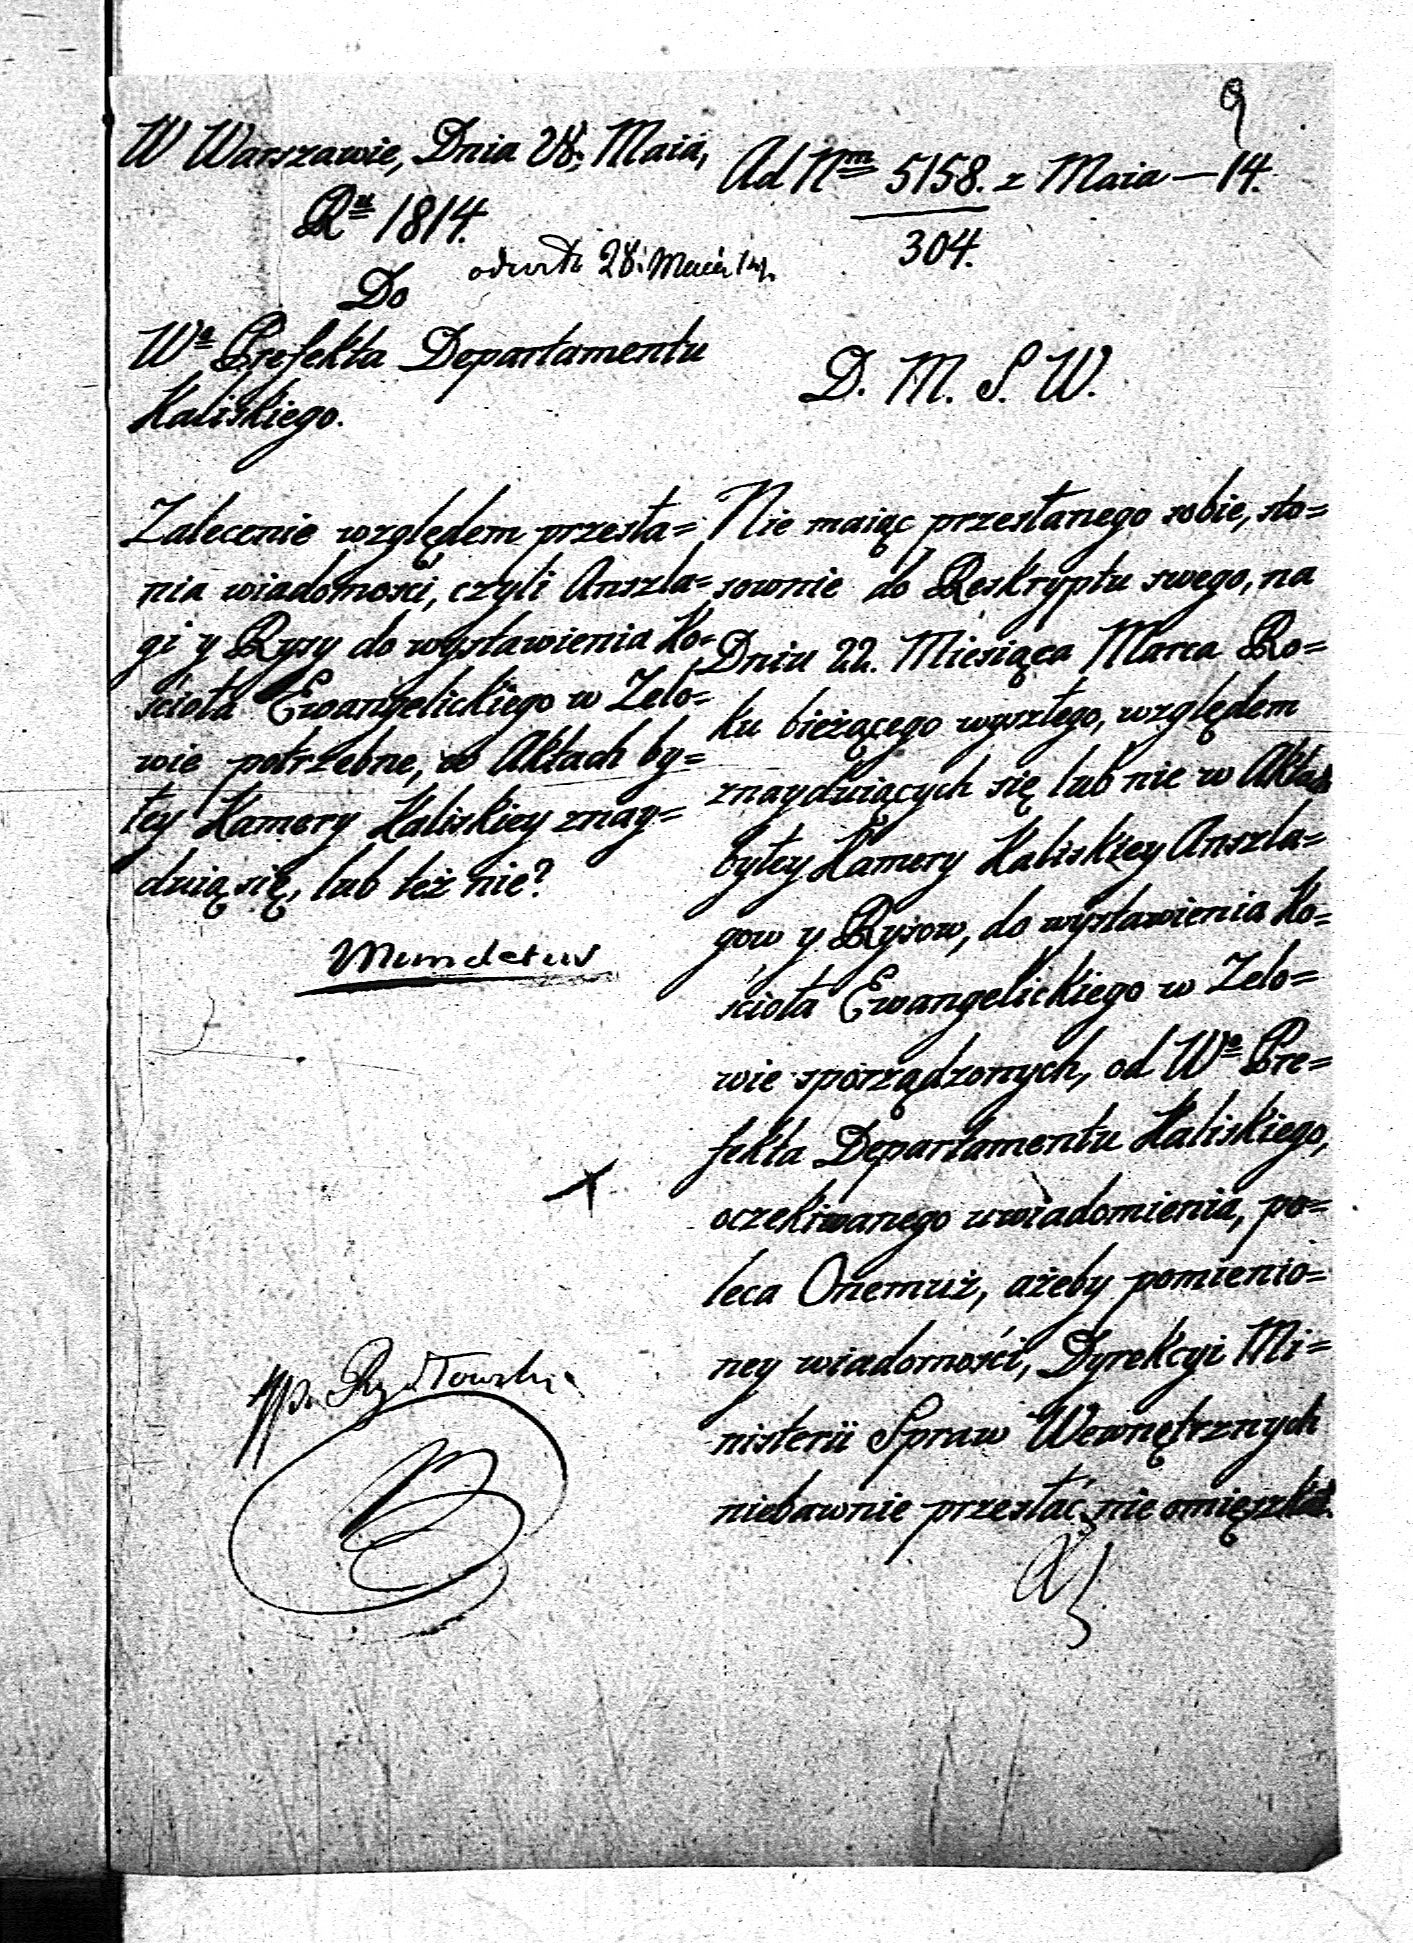 9
W Warszawie, Dnia 28. Maia,
Ru 1814.
Ad Nm 5158. z Maia — 14.
304.
28. Maia 14.
Do
Wo Prefekta Departamentu
Kaliskiego.
D. M. S. W.
Zalecenie względem przesła=
nia wiadomości, czyli Anszla=
gi y Rysy do wystawienia Ko=
ścioła Ewangelickiego w Zelo=
wie potrzebne, w Aktach by=
łey Kamery Kaliskiey znay=
duią się, lub też nie?
Mundetur
Nie maiąc przesłanego sobie, sto=
sownie do Reskryptu swego, na
Dniu 22. Miesiąca Marca Ro=
ku bieżącego wyszłego, względem
znayduiących się lub nie w Aktach
byłey Kamery Kaliskiey Anszla=
gow y Rysow, do wystawienia Ko=
ścioła Ewangelickiego w Zelo=
wie sporządzonych, od Wo Pre=
fekta Departamentu Kaliskiego,
oczekiwanego uwiadomienia, po=
leca Onemuż, ażeby pomienio=
ney wiadomości, Dyrekcyi Mi=
nisterii Spraw Wewnętrznych
niebawnie przesłać nie omięszkał.